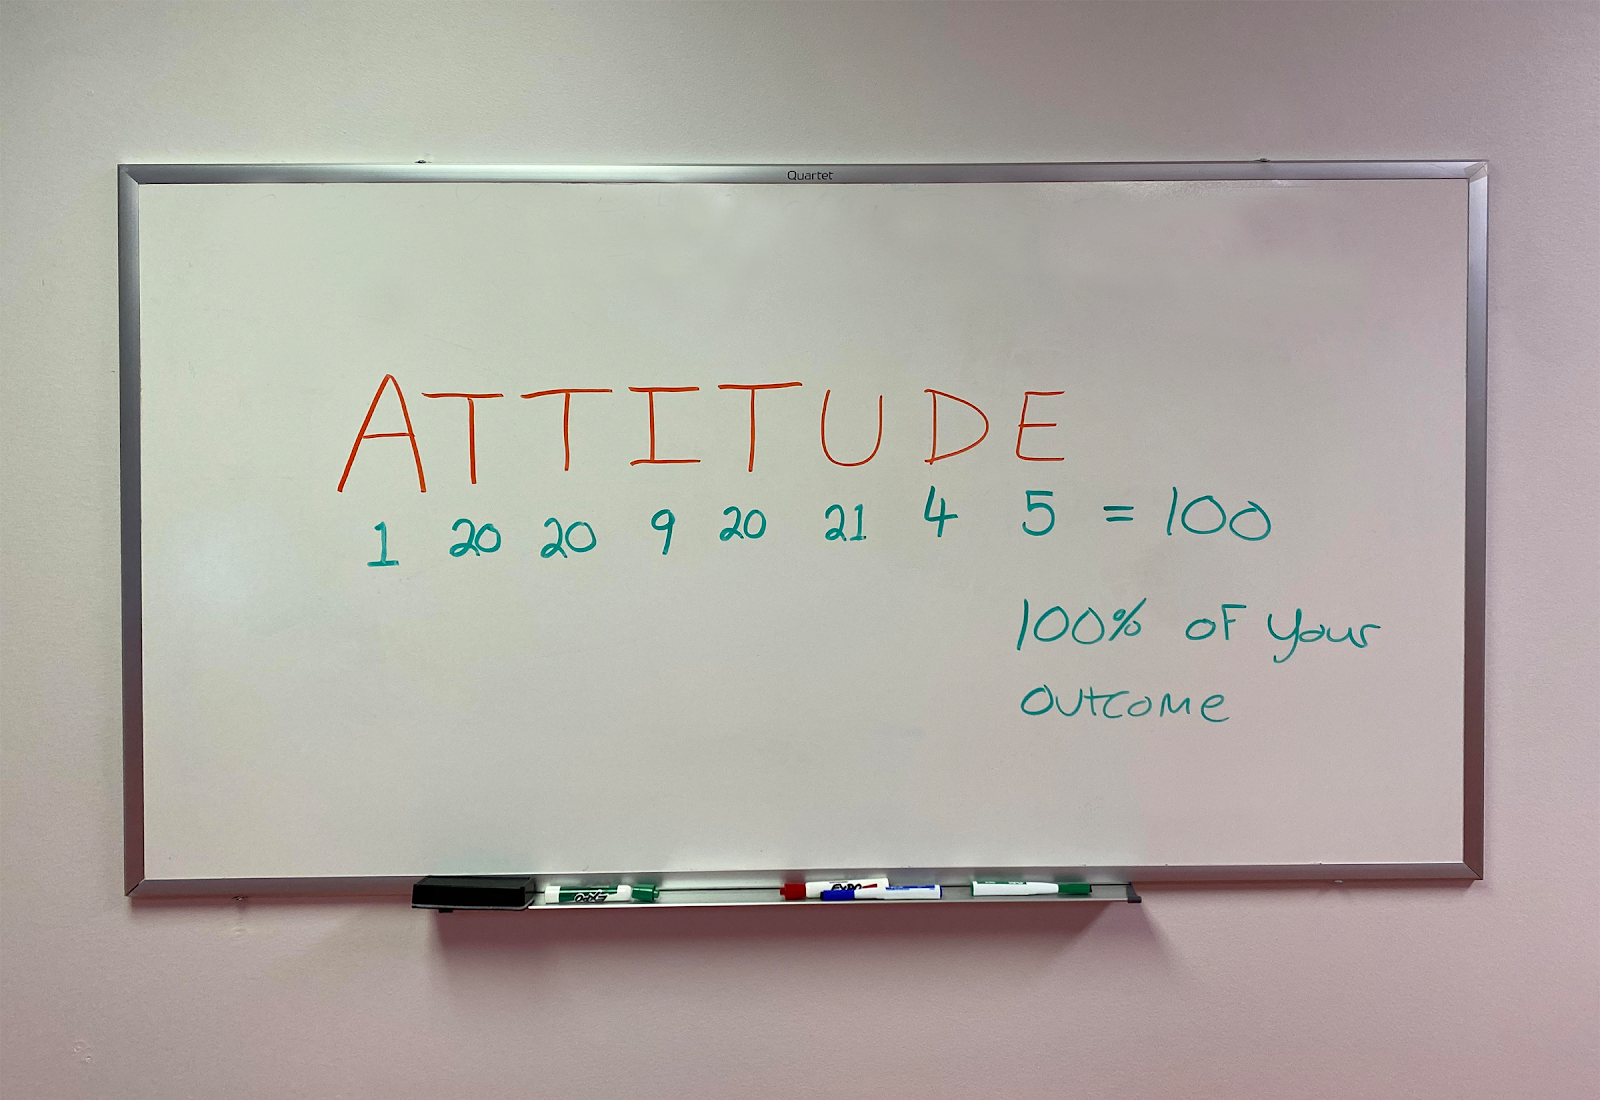 Quartet
ATTITUDE
1 20 20 9 20 21 4 5 = 100
100% OF your
OUTCOME
EXPO